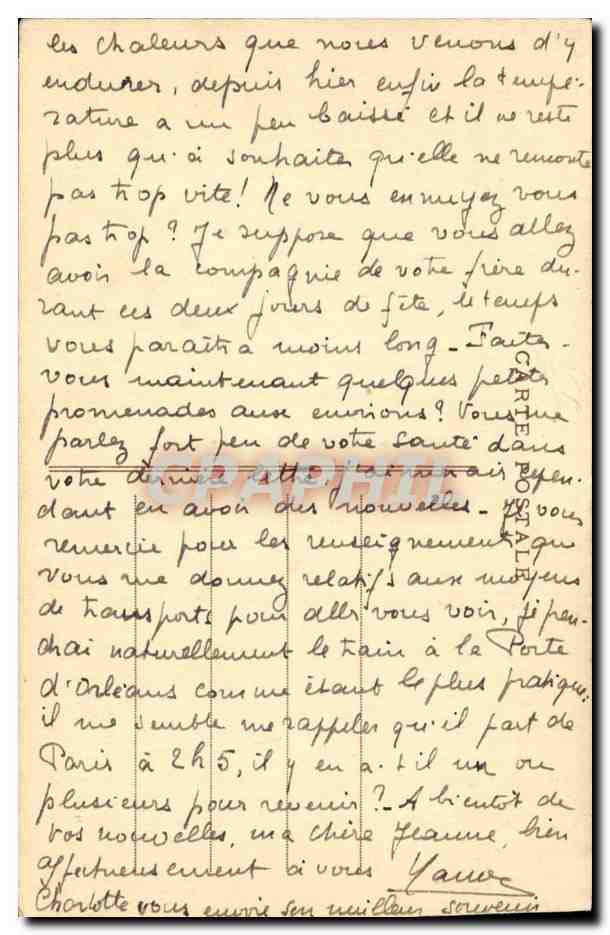 les chaleurs que nous venons d'y
endurer, depuis hier enfin la tempé-
rature a un peu baissé et il ne reste
plus qu'à souhaiter qu'elle ne remonte
pas trop vite! Ne vous ennuyez vous
pas trop? Je suppose que vous allez
avoir la compagnie de votre frère du-
rant ces deux jours de fête, le temps
vous paraîtra moins long - Faites-
vous maintenant quelques petites
promenades aux environs? Vous me
parlez fort peu de votre santé dans
votre dernière lettre, j'aimerais cepen-
dant en avoir des nouvelles - Je vous
remercie pour les renseignements que
vous me donnez relatifs aux moyens
de transports pour aller vous voir, je pren-
drai naturellement le train à la Porte
d'Orléans comme étant le plus pratique;
il me semble me rappeler qu'il part de
Paris à 2h5, il y en a-t-il un ou
plusieurs pour revenir? - A bientôt de
vos nouvelles, ma chère Jeanne, bien
affectueusement à vous
Charlotte vous envoie son meilleur souvenir
CARTE POSTALE
CPAPHIL